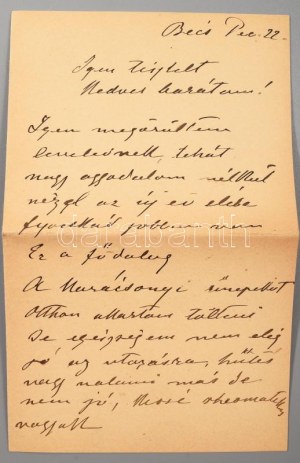 Bécs Dec. 22.
Igen tisztelt
Kedves barátom!
Igen megörültem
levelednek, tehát
nagy aggodalom nélkül
nézel az új év elébe
jobban van
Ez a fődolog
A Karácsonyi ünnepeket
otthon akartam tölteni
de egészségem nem elég
jó az utazásra, hűlés
vagy valami más de
nem jó,
vagyok
darabanth